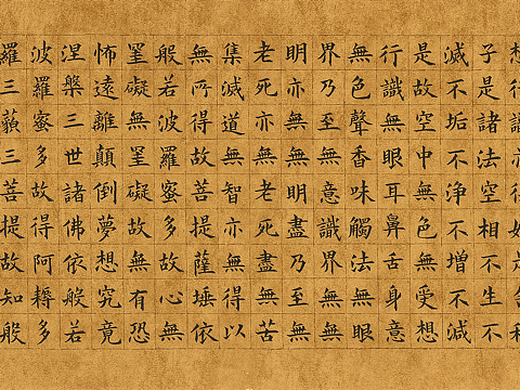 想行識亦復如是舍利
子是諸法空相不生不
滅不垢不浄不增不減
是故空中無色無受想
行識無眼耳鼻舌身意
無色聲香味觸法無眼
界乃至無意識界無無
明亦無無明盡乃至無
老死亦無老死盡無苦
集滅道無智亦無得以
無所得故菩提薩埵依
般若波羅蜜多故心無
罣礙無罣礙故無有恐
怖遠離顛倒夢想究竟
涅槃三世諸佛依般若
波羅蜜多故得阿耨多
羅三藐三菩提故知般